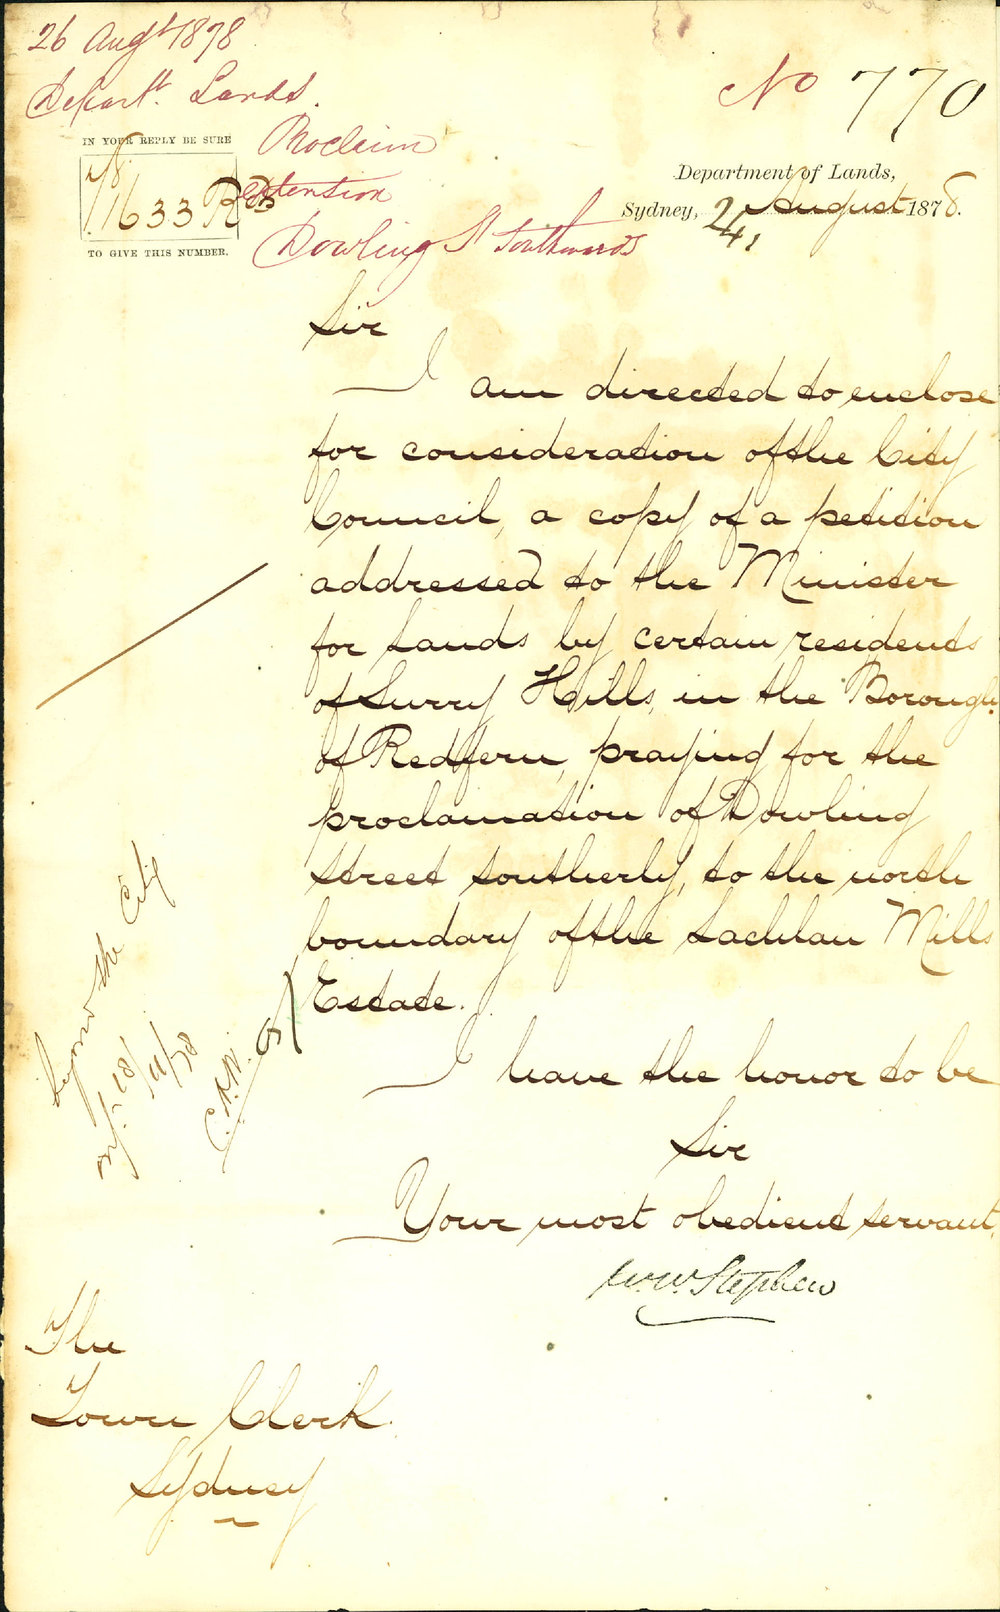 26 Augt 1878
Depart. Lands.
No 770
Proclaim
extention
Dowling St Southwards
IN YOUR REPLY BE SURE
78
11633 Rds
TO GIVE THIS NUMBER.
Department of Lands,
Sydney, 24, August 1878.
Sir
I am directed to enclose
for consideration of the City
Council, a copy of a petition
addressed to the Minister
for Lands by certain residents
of Surry Hills, in the Borough
of Redfern, praying for the
proclamation of Dowling
Street southerly, to the north
boundary of the Lachlan Mills
Estate.
I have the honor to be
Sir
Your most obedient servant,
W.W. Stephen
beyond the City
The
Town Clerk.
Sydney